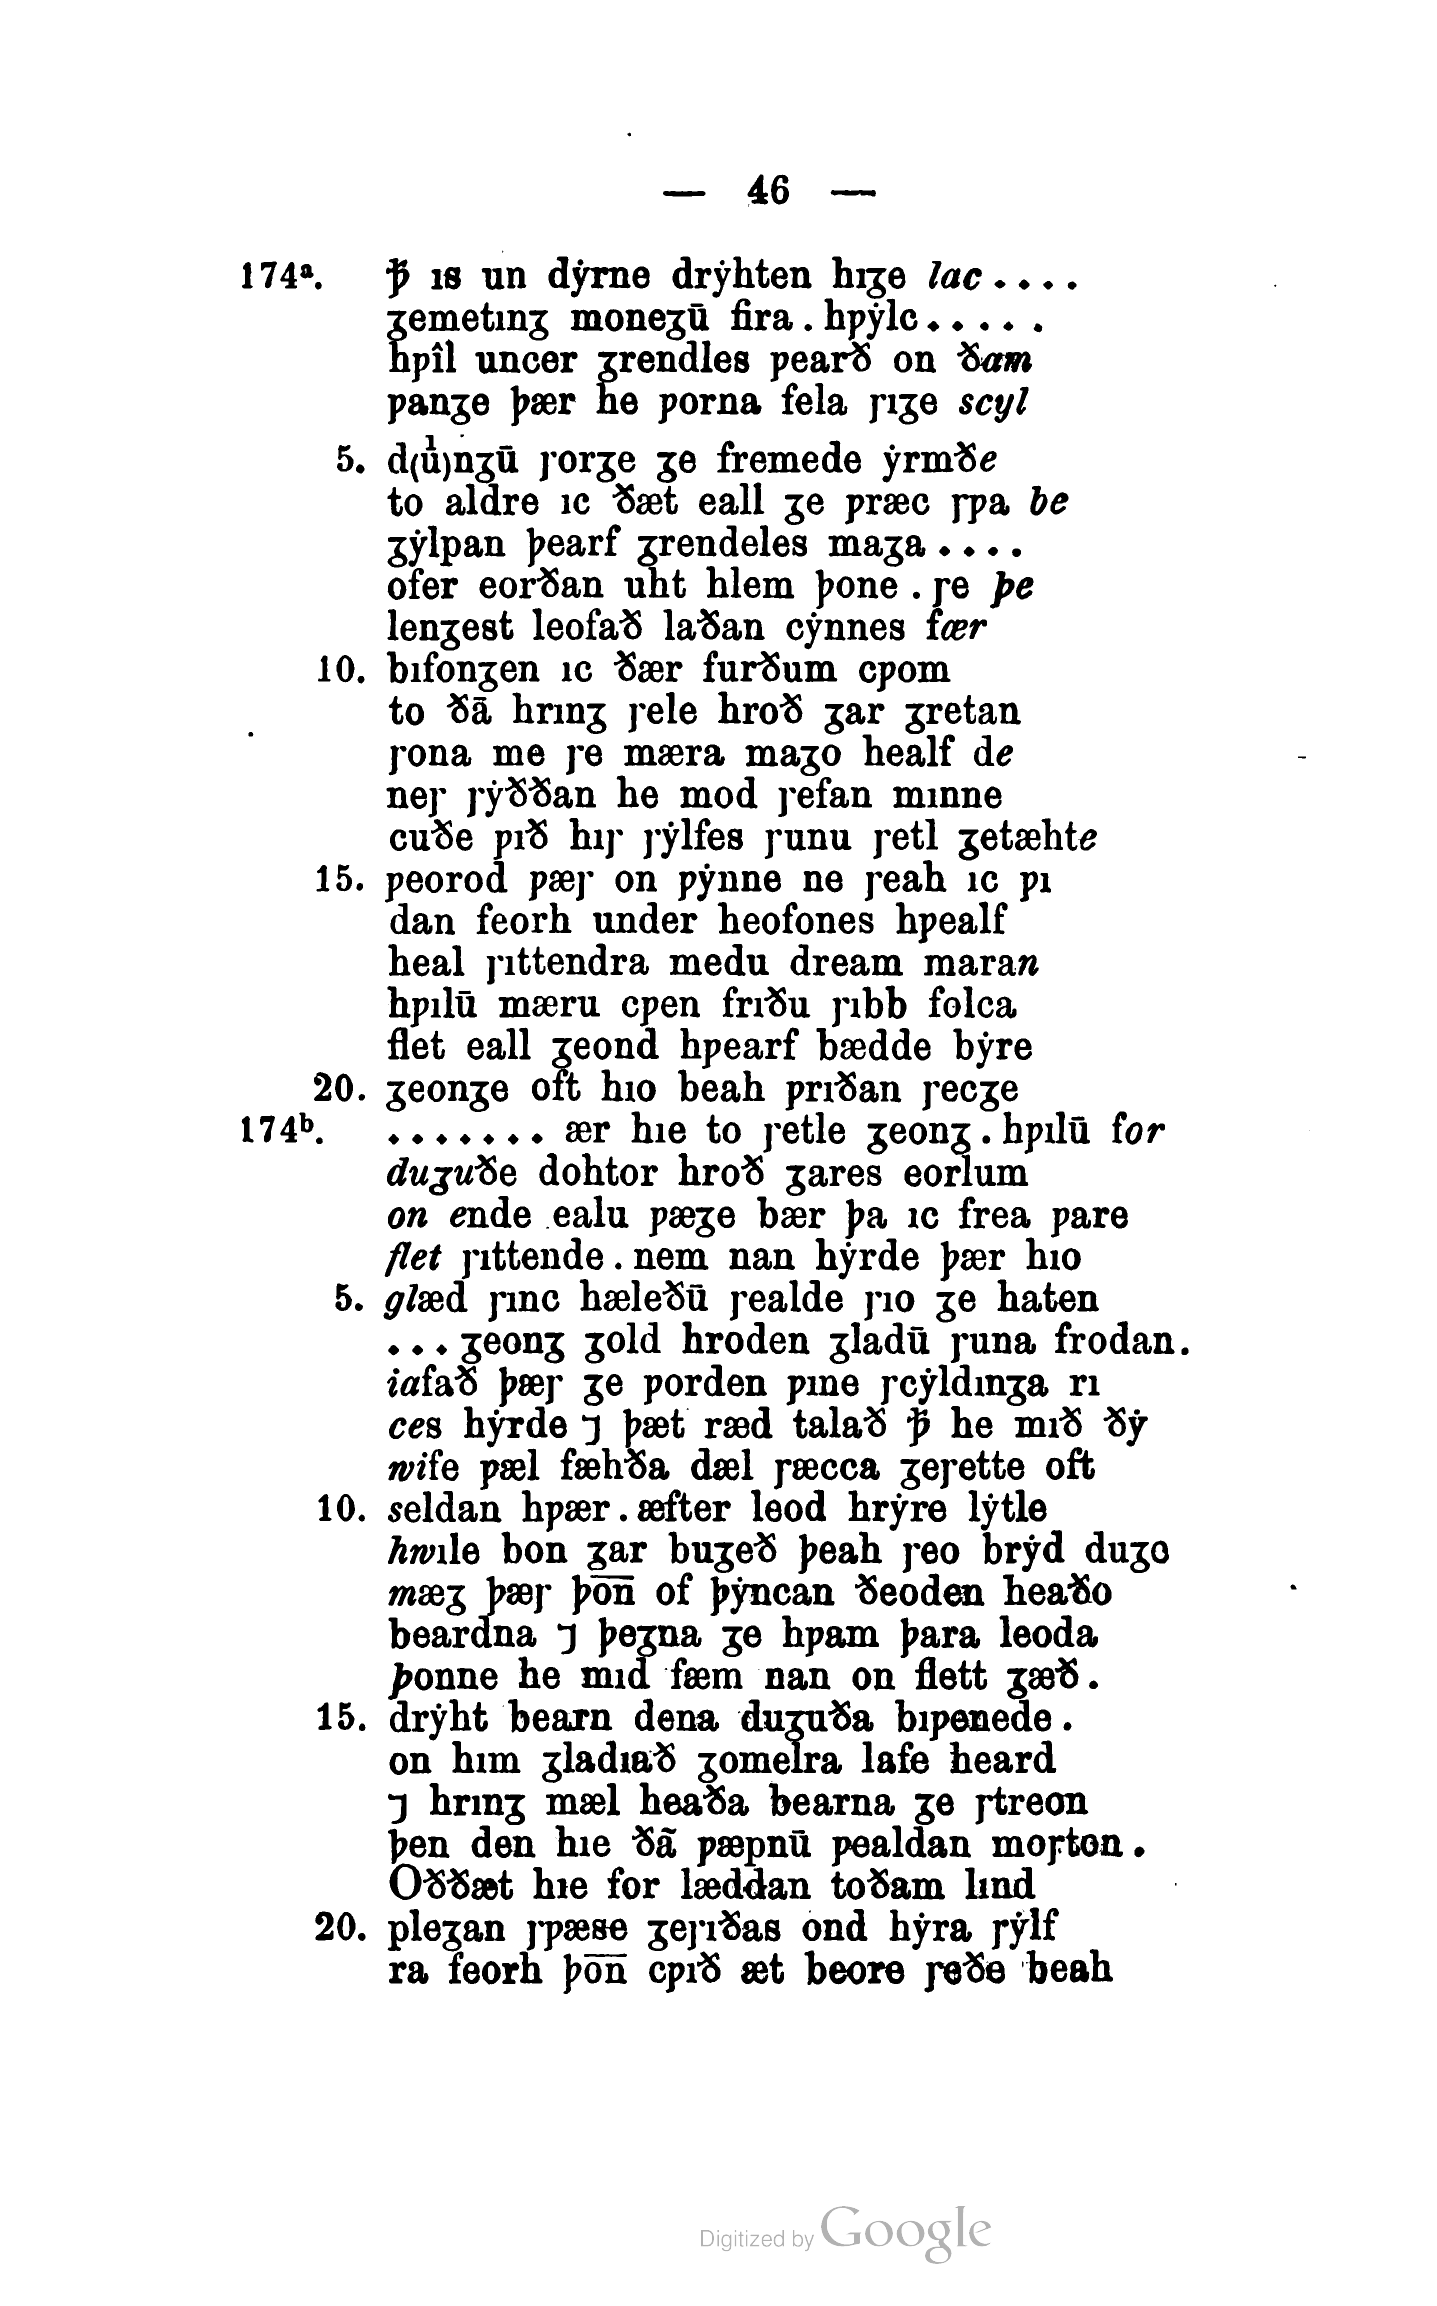 — 46 —
174ª. ꝥ ıs un dẏrne drẏhten hıʒe lac . . . .
ʒemetınʒ moneʒū fira . hƿẏlc . . . . .
hƿîl uncer ʒrendles ƿearð on ðam
ƿanʒe þær he ƿorna fela ꞅıʒe scyl
5. d(u̍)nʒū ꞅorʒe ʒe fremede ẏrmðe
to aldre ıc ðæt eall ʒe ƿræc ꞅƿa be
ʒẏlpan þearf ʒrendeles maʒa . . . .
ofer eorðan uht hlem þone . ꞅe þe
lenʒest leofað laðan cẏnnes fær
10. bıfonʒen ıc ðær furðum cƿom
to ðā hrınʒ ꞅele hroð ʒar ʒretan
ꞅona me ꞅe mæra maʒo healf de
neꞅ ꞅẏððan he mod ꞅefan mınne
cuðe ƿıð hıꞅ ꞅẏlfes ꞅunu ꞅetl ʒetæhte
15. ƿeorod ƿæꞅ on ƿẏnne ne ꞅeah ıc ƿı
dan feorh under heofones hƿealf
heal ꞅıttendra medu dream maran
hƿılū mæru cƿen frıðu ꞅıbb folca
flet eall ʒeond hƿearf bædde bẏre
20. ʒeonʒe oft hıo beah ƿrıðan ꞅecʒe
174ᵇ. . . . . . . . ær hıe to ꞅetle ʒeonʒ . hƿılū for
duʒuðe dohtor hroð ʒares eorlum
on ende ealu ƿæʒe bær þa ıc frea ƿare
flet ꞅıttende . nem nan hẏrde þær hıo
5. glæd ꞅınc hæleðū ꞅealde ꞅıo ʒe haten
. . . ʒeonʒ ʒold hroden ʒladū ꞅuna frodan.
iafað þæꞅ ʒe ƿorden ƿıne ꞅcẏldınʒa rı
ces hẏrde ⁊ þæt ræd talað ꝥ he mıð ðẏ
wife ƿæl fæhða dæl ꞅæcca ʒeꞅette oft
10. seldan hƿær . æfter leod hrẏre lẏtle
hwıle bon ʒar buʒeð þeah ꞅeo brẏd duʒo
mæʒ þæꞅ þo̅n̅ of þẏncan ðeoden heaðo
beardna ⁊ þeʒna ʒe hƿam þara leoda
þonne he mıd fæm nan on flett ʒæð .
15. drẏht bearn dena duʒuða bıƿenede .
on hım ʒladıað ʒomelra lafe heard
⁊ hrınʒ mæl heaða bearna ʒe ꞅtreon
þen den hıe ðā ƿæpnū ƿealdan moꞅton .
Oððæt hıe for læddan toðam lınd
20. pleʒan ꞅƿæse ʒeꞅıðas ond hẏra ꞅẏlf
ra feorh þo̅n̅ cƿıð æt beore ꞅeðe beah
Digitized by Google